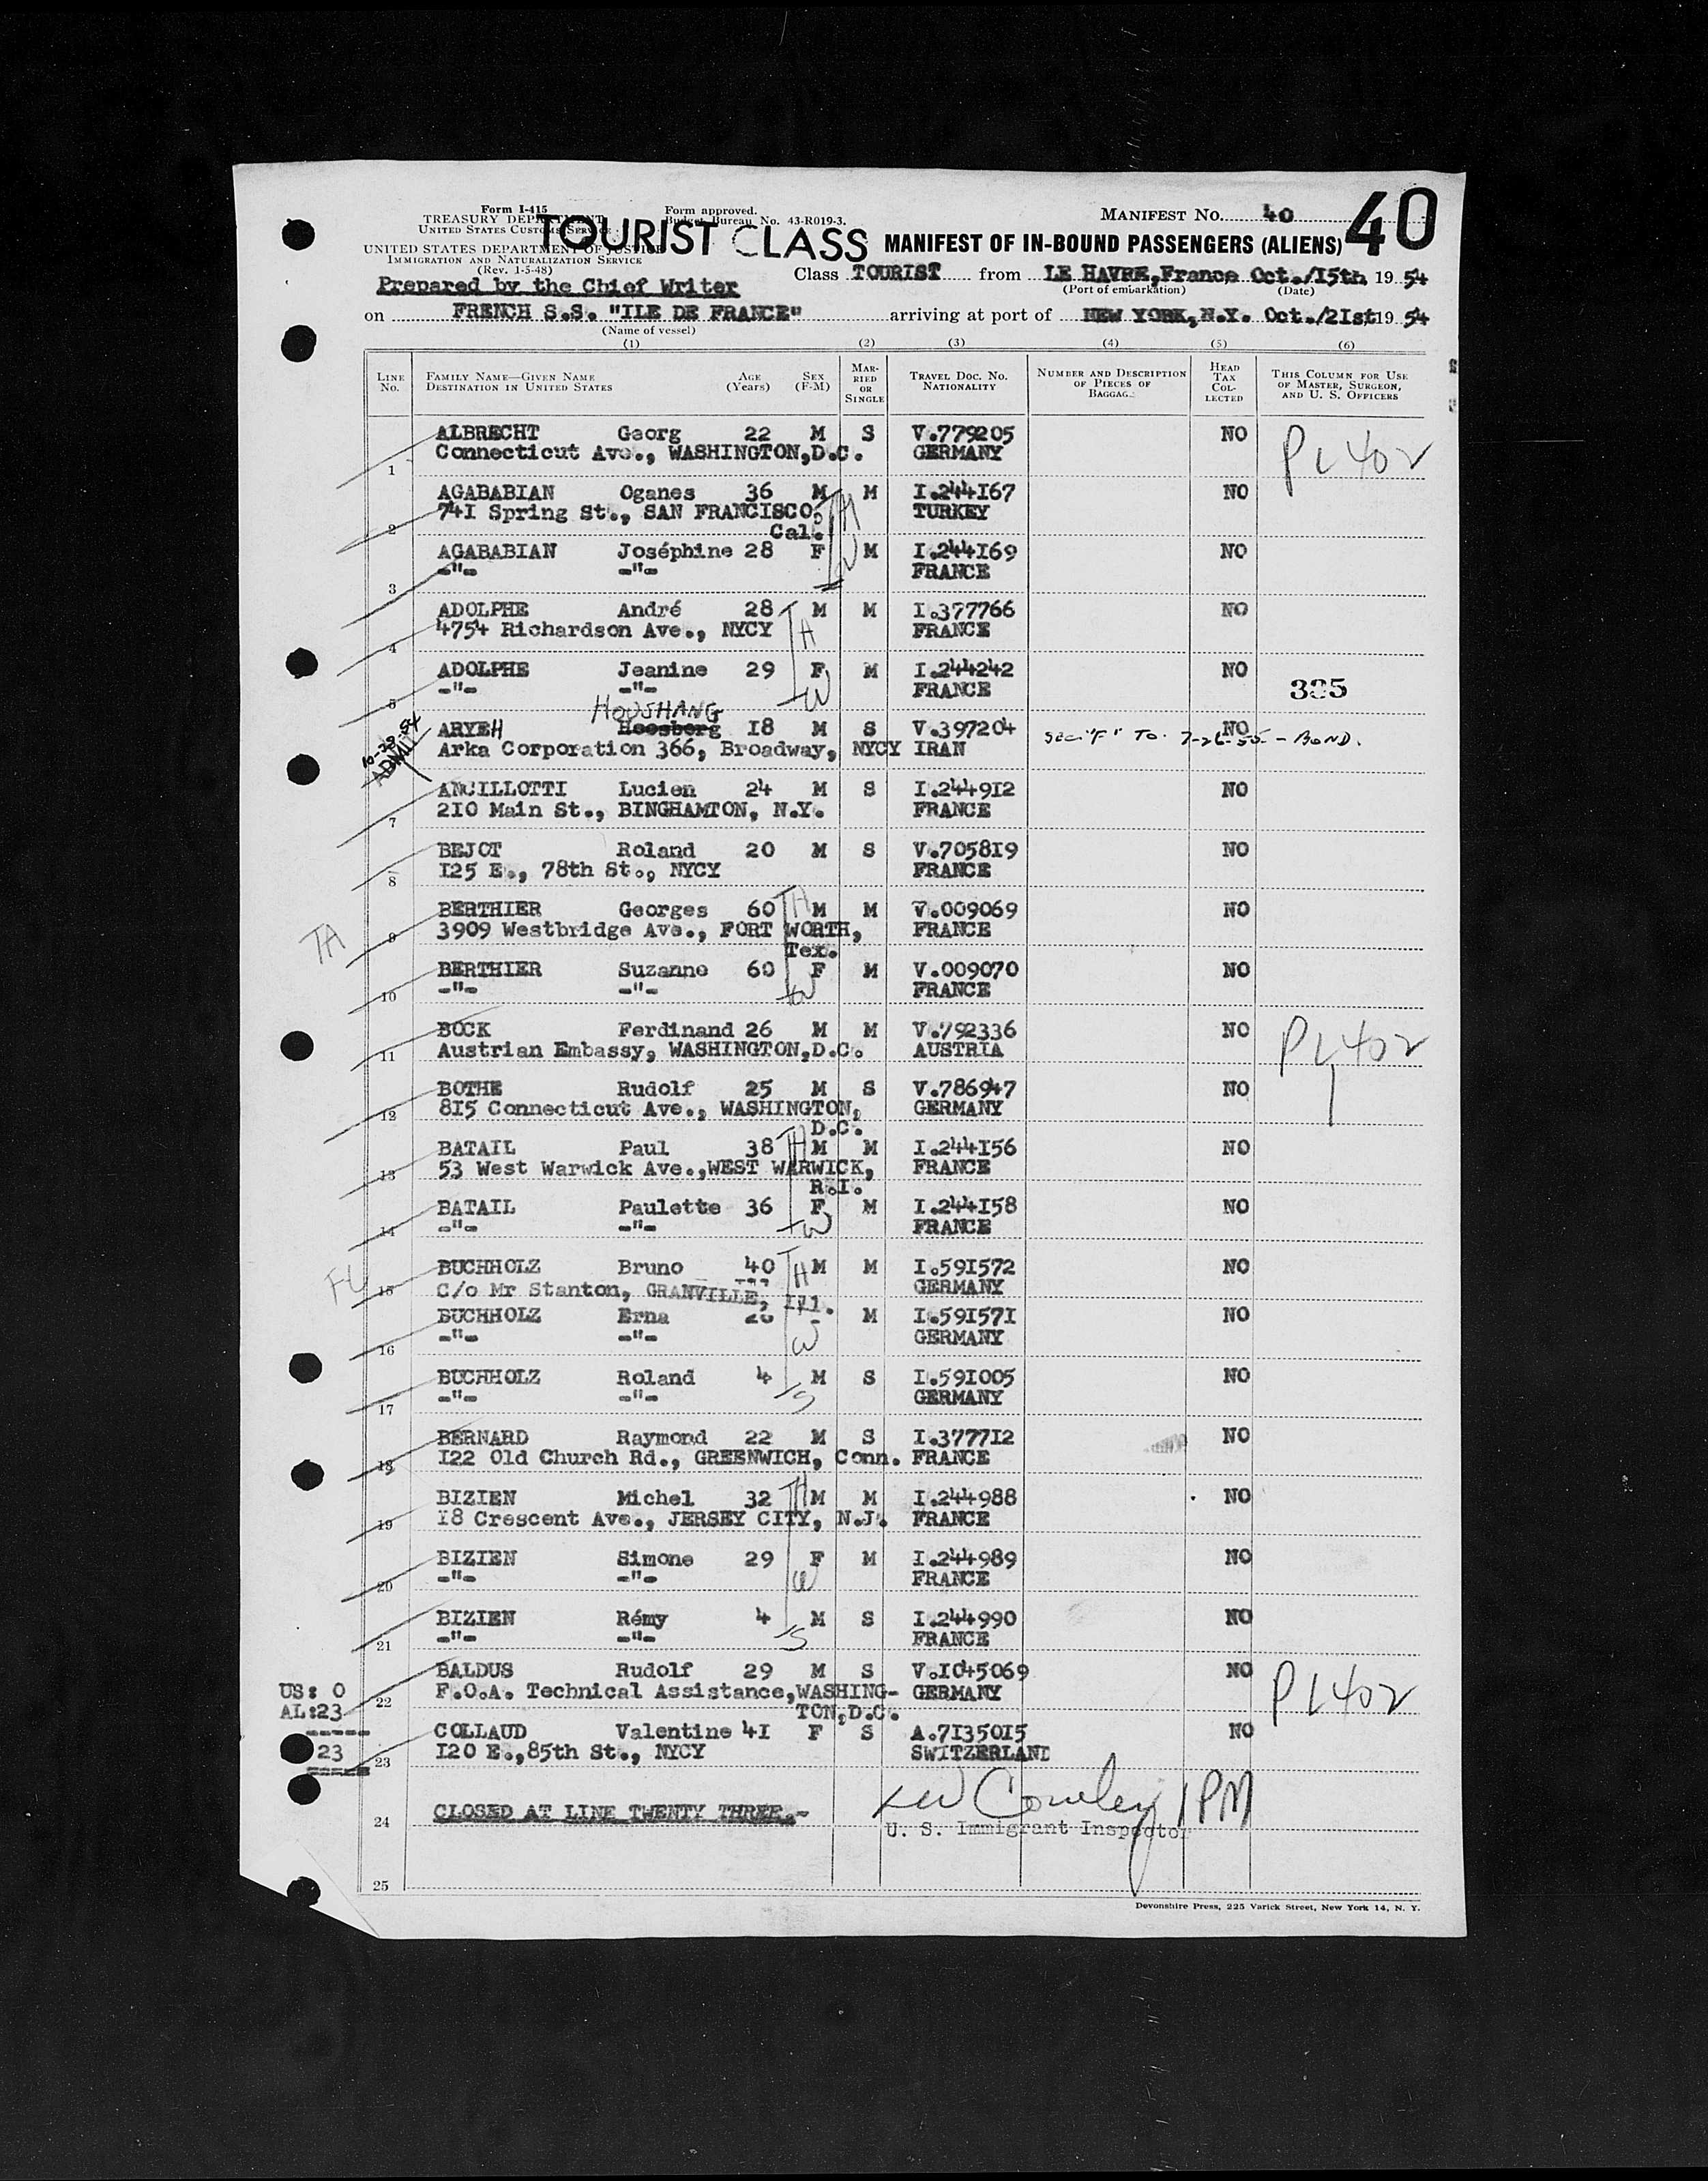 Form I-415
TREASURY DEPARTMENT
UNITED STATES CUSTOMS SERVICE
UNITED STATES DEPARTMENT OF JUSTICE
IMMIGRATION AND NATURALIZATION SERVICE
(Rev. 1-5-48)
Form approved.
Budget Bureau No. 43-R019-3.
TOURIST CLASS
MANIFEST NO. 40
40
MANIFEST OF IN-BOUND PASSENGERS (ALIENS)
Prepared by the Chief Writer
Class TOURIST from LE HAVRE,France Oct./15th 19 54
(Port of embarkation) (Date)
on FRENCH S.S. "ILE DE FRANCE" arriving at port of NEW YORK,N.Y. Oct./21st 19 54
(Name of vessel)
(1) (2) (3) (4) (5) (6)
LINE No. FAMILY NAME—GIVEN NAME DESTINATION IN UNITED STATES AGE (Years) SEX (F-M) MARRIED OR SINGLE TRAVEL DOC. NO. NATIONALITY NUMBER AND DESCRIPTION OF PIECES OF BAGGAGE HEAD TAX COLLECTED THIS COLUMN FOR USE OF MASTER, SURGEON, AND U. S. OFFICERS
ALBRECHT Georg 22 M S V.779205 NO PL 402
1 Connecticut Ave., WASHINGTON,D.C. GERMANY
AGABABIAN Oganes 36 M M I.244167 NO
2 741 Spring St., SAN FRANCISCO, TURKEY
Cal.
AGABABIAN Joséphine 28 F M I.244169 NO
3 -"- -"- FRANCE
ADOLPHE André 28 M M I.377766 NO
4 4754 Richardson Ave., NYCY FRANCE
ADOLPHE Jeanine 29 F M I.244242 NO
5 -"- -"- FRANCE 335
HOUSHANG
ARYEH Hoosberg 18 M S V.397204 NO
Arka Corporation 366, Broadway, NYCY IRAN SEC "F" TO 7-26-55 - BOND.
ANCILLOTTI Lucien 24 M S I.244912 NO
7 210 Main St., BINGHAMTON, N.Y. FRANCE
BEJOT Roland 20 M S V.705819 NO
8 125 E., 78th St., NYCY FRANCE
BERTHIER Georges 60 M M V.009069 NO
TA 9 3909 Westbridge Ave., FORT WORTH, FRANCE
Tex.
BERTHIER Suzanne 60 F M V.009070 NO
10 -"- -"- FRANCE
BOCK Ferdinand 26 M M V.792336 NO PL 402
11 Austrian Embassy, WASHINGTON,D.C. AUSTRIA
BOTHE Rudolf 25 M S V.786947 NO
12 815 Connecticut Ave., WASHINGTON, GERMANY
D.C.
BATAIL Paul 38 M M I.244156 NO
13 53 West Warwick Ave.,WEST WARWICK, FRANCE
R.I.
BATAIL Paulette 36 F M I.244158 NO
14 -"- -"- FRANCE
BUCHHOLZ Bruno 40 M M I.591572 NO
15 C/o Mr Stanton, GRANVILLE, Ill. GERMANY
BUCHHOLZ Erna M I.591571 NO
16 -"- -"- GERMANY
BUCHHOLZ Roland 4 M S I.591005 NO
17 -"- -"- GERMANY
BERNARD Raymond 22 M S I.377712 NO
18 122 Old Church Rd., GREENWICH, Conn. FRANCE
BIZIEN Michel 32 M M I.244988 NO
19 18 Crescent Ave., JERSEY CITY, N.J. FRANCE
BIZIEN Simone 29 F M I.244989 NO
20 -"- -"- FRANCE
BIZIEN Rémy 4 M S I.244990 NO
21 -"- -"- FRANCE
BALDUS Rudolf 29 M S V.1045069 NO PL 402
US: 0 22 F.O.A. Technical Assistance,WASHING- GERMANY
AL:23 TON,D.C.
COLLAUD Valentine 41 F S A.7135015 NO
23 23 120 E.,85th St., NYCY SWITZERLAND
24 CLOSED AT LINE TWENTY THREE.-
U. S. Immigrant Inspector
25
Devonshire Press, 225 Varick Street, New York 14, N. Y.